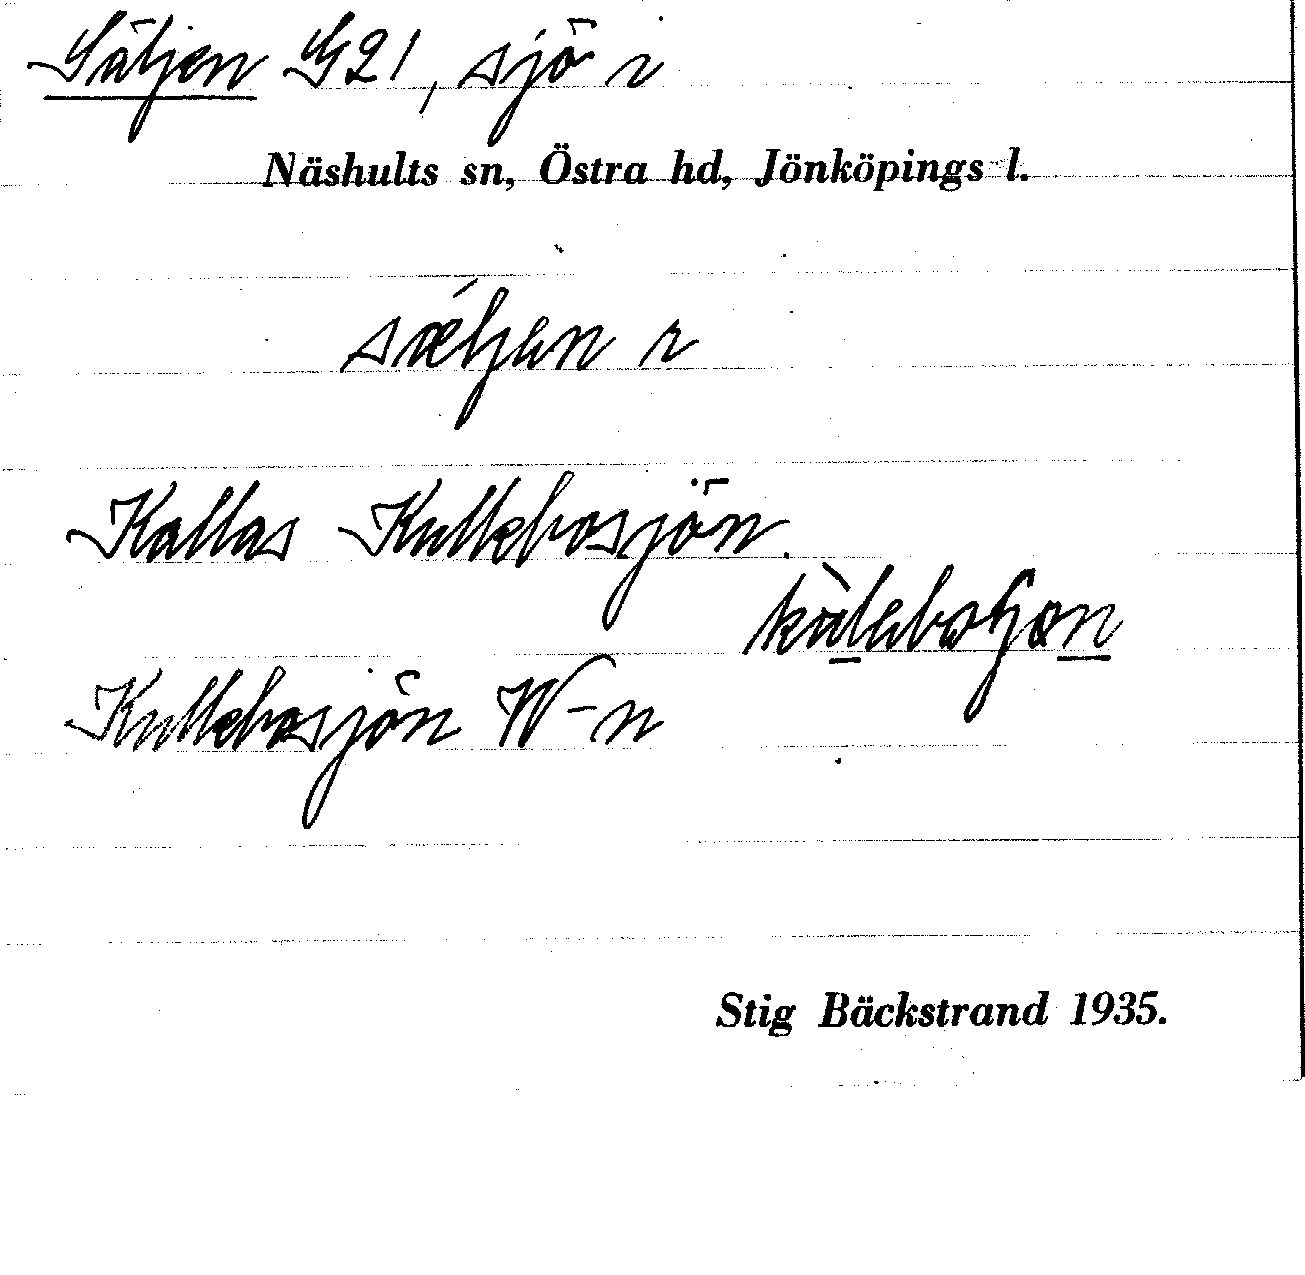 Säljen G21, sjö i
Näshults sn, Östra hd, Jönköpings l.
sǽljen r
Kallas Kullebosjön.
kùlebosjøn
Kullebosjön W-n
Stig Bäckstrand 1935.